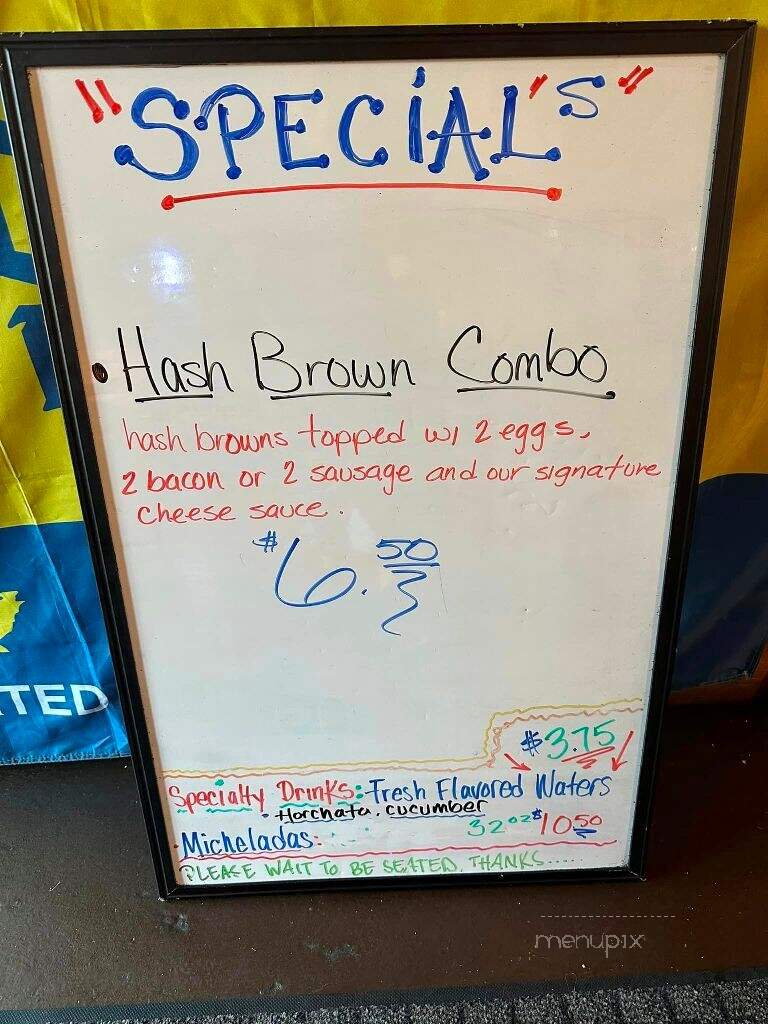 "SPECIAL"S"
• Hash Brown Combo
hash browns topped w/ 2 eggs,
2 bacon or 2 sausage and our signature
cheese sauce.
$6.50
$3.75
Specialty Drinks: Fresh Flavored Waters
• Horchata, cucumber
• Micheladas: 32oz $10.50
PLEASE WAIT TO BE SEATED, THANKS.....
TED
menupix